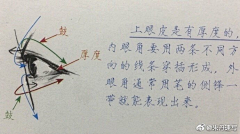 鼓
厚度
鼓
上眼皮是有厚度的,
内眼角要用两条不同方
向的线条穿插形成,外
眼角通常用笔的侧锋一
带就能表现出来。